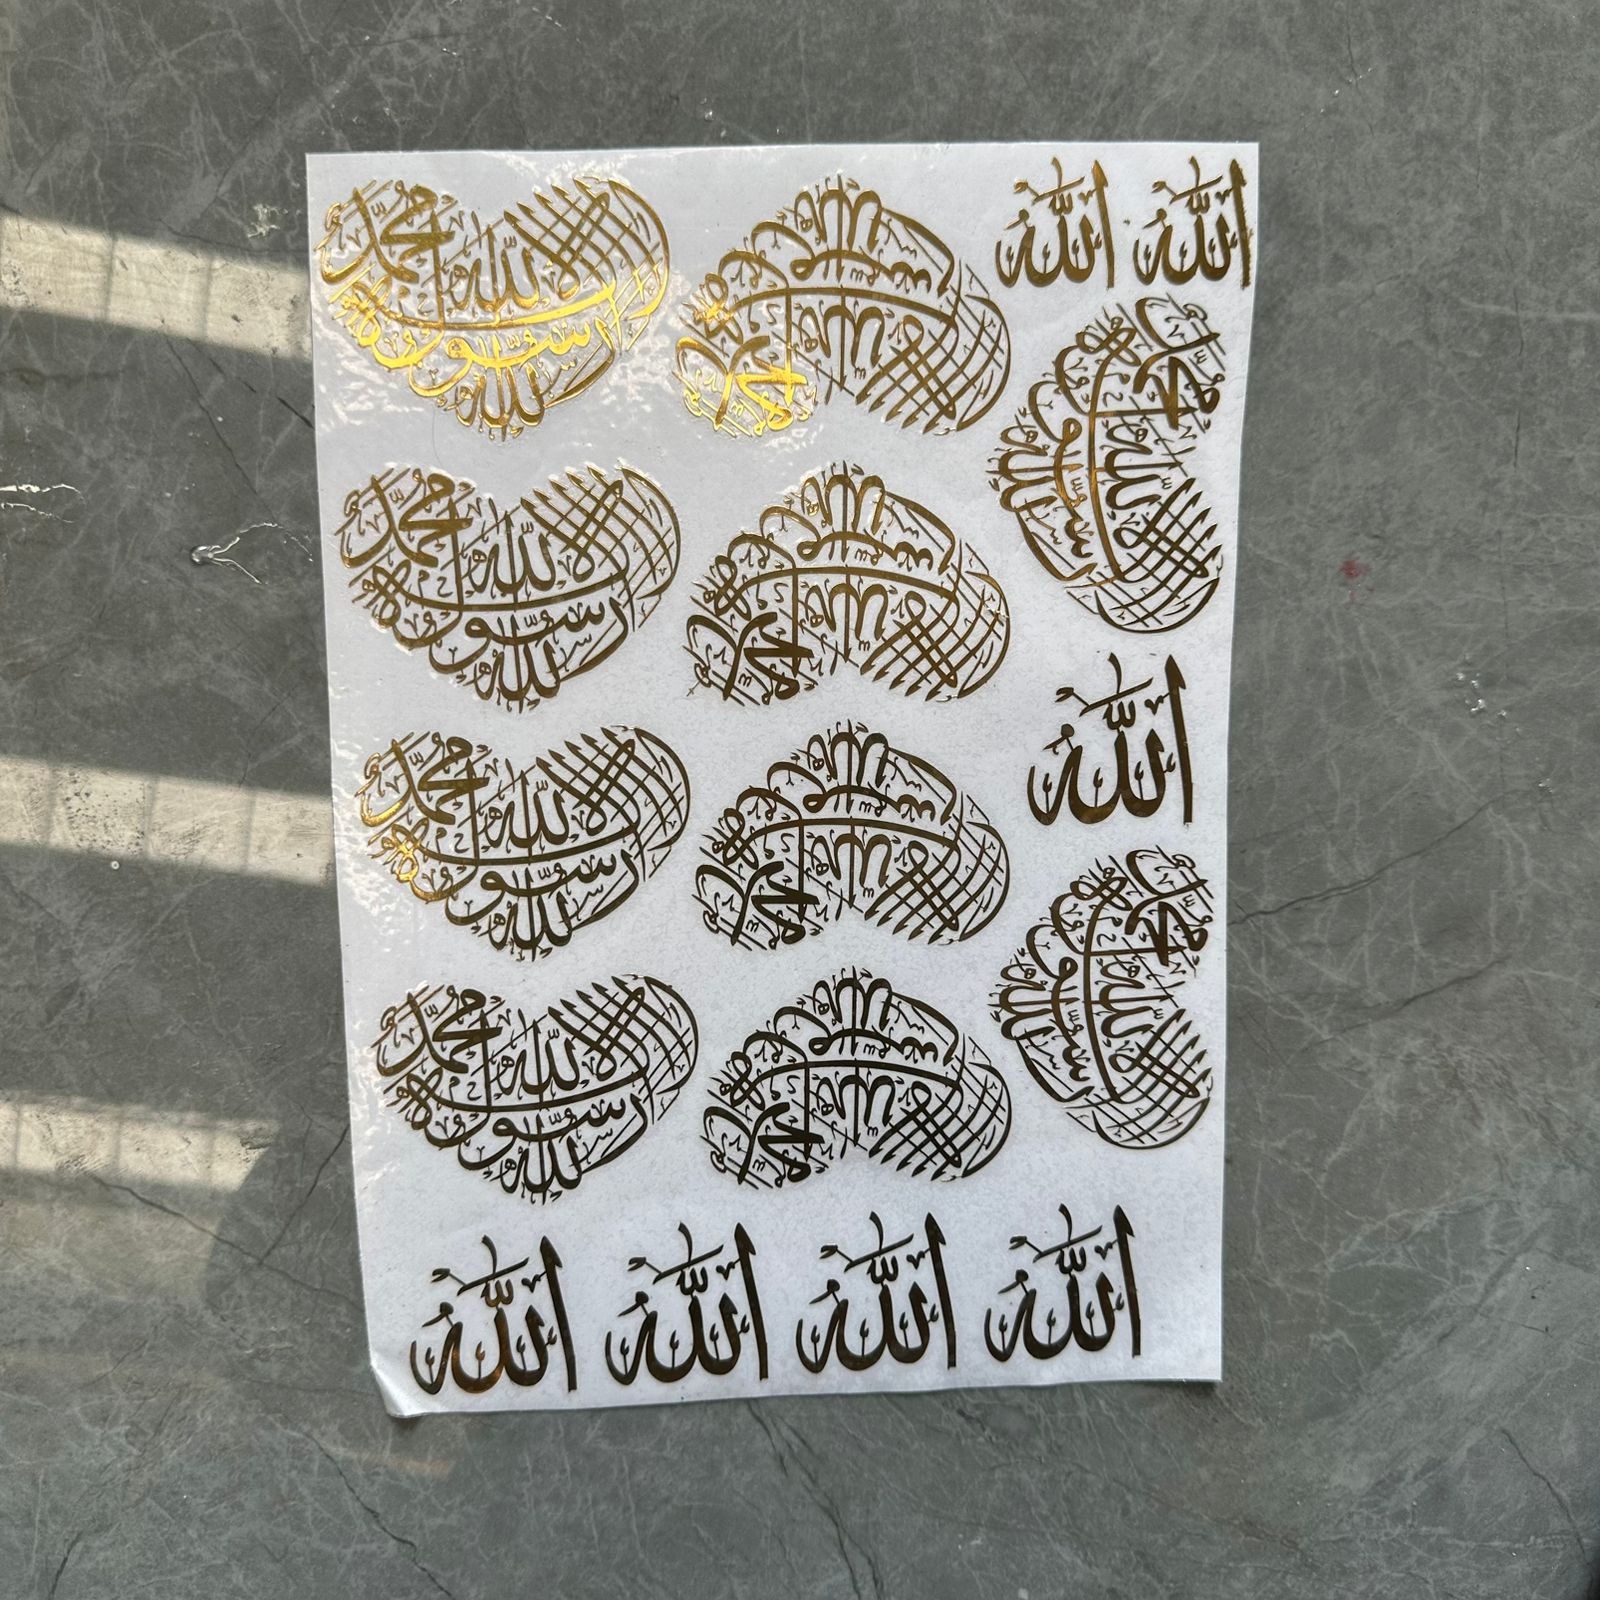 الله الله
لا إله إلا الله محمد رسول الله
لا إله إلا الله محمد رسول الله
لا إله إلا الله محمد رسول الله
لا إله إلا الله محمد رسول الله
لا إله إلا الله محمد رسول الله
الله
لا إله إلا الله محمد رسول الله
لا إله إلا الله محمد رسول الله
لا إله إلا الله محمد رسول الله
لا إله إلا الله محمد رسول الله
لا إله إلا الله محمد رسول الله
الله الله الله الله